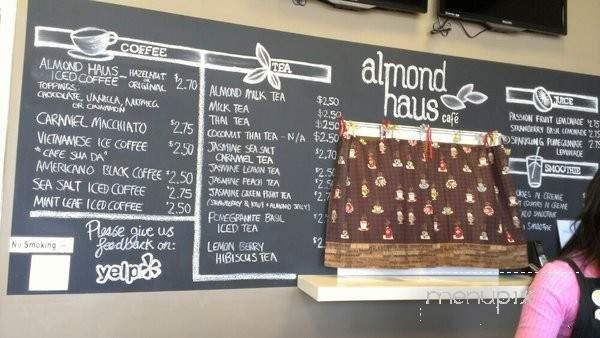 COFFEE
ALMOND HAUS - HAZELNUT
ICED COFFEE OR ORIGINAL $2.70
TOPPINGS:
CHOCOLATE, VANILLA, NUTMEG
OR CINNAMON
CARAMEL MACCHIATO $2.75
VIETNAMESE ICE COFFEE $2.50
"CAFE SUA DA"
AMERICANO BLACK COFFEE $2.50
SEA SALT ICED COFFEE $2.75
MINT LEAF ICED COFFEE $2.50
Please give us
feedback on:
yelp
No Smoking
TEA
ALMOND MILK TEA $2.50
MILK TEA $2.50
THAI TEA $2.50
COCONUT THAI TEA - N/A $2.50
JASMINE SEA SALT $2.70
CARAMEL TEA
JASMINE LEMON TEA
JASMINE PEACH TEA
JASMINE GREEN FRUIT TEA
(STRAWBERRY & KIWI + ALMOND JELLY)
POMEGRANATE BASIL
ICED TEA
LEMON BERRY
HIBISCUS TEA
almond
haus
café
JUICE
PASSION FRUIT LEMONADE $2.75
STRAWBERRY BASIL LEMONADE $2.75
SPARKLING POMEGRANATE $2.75
LEMONADE
SMOOTHIE
N CREME
SMOOTHIE
menupix